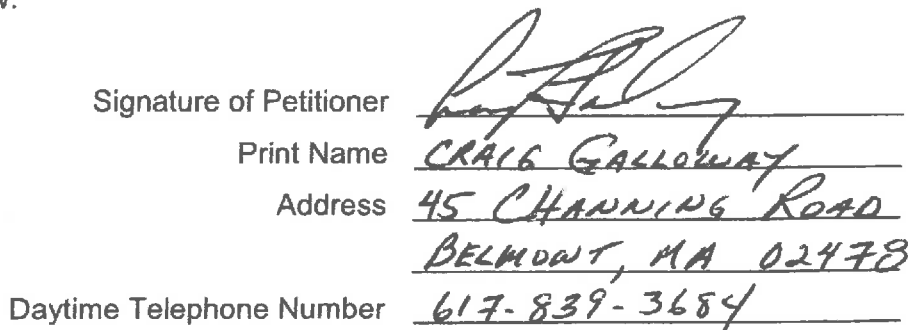 Signature of Petitioner
Print Name CRAIG GALLOWAY
Address 45 CHANNING ROAD
BELMONT, MA 02478
Daytime Telephone Number 617-839-3684